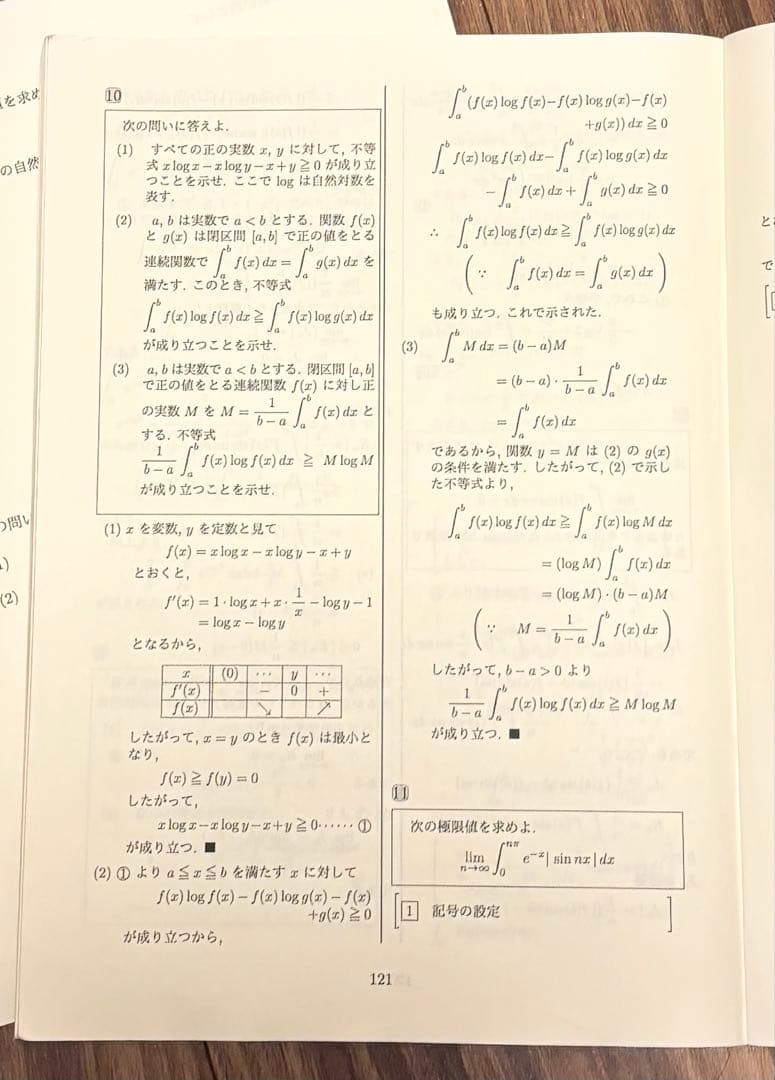 を求め
の自然
の問い
(2)
10
次の問いに答えよ.
(1) すべての正の実数 x, y に対して, 不等
式 x log x − x log y − x + y ≧ 0 が成り立
つことを示せ. ここで log は自然対数を
表す.
(2) a, b は実数で a < b とする. 関数 f(x)
と g(x) は閉区間 [a, b] で正の値をとる
連続関数で ∫_a^b f(x) dx = ∫_a^b g(x) dx を
満たす. このとき, 不等式
∫_a^b f(x) log f(x) dx ≧ ∫_a^b f(x) log g(x) dx
が成り立つことを示せ.
(3) a, b は実数で a < b とする. 閉区間 [a, b]
で正の値をとる連続関数 f(x) に対し正
の実数 M を M = 1/(b−a) ∫_a^b f(x) dx と
する. 不等式
1/(b−a) ∫_a^b f(x) log f(x) dx ≧ M log M
が成り立つことを示せ.
(1) x を変数, y を定数と見て
f(x) = x log x − x log y − x + y
とおくと,
f′(x) = 1 · log x + x · 1/x − log y − 1
= log x − log y
となるから,
x (0) ⋯ y ⋯
f′(x) − 0 +
f(x) ↘ ↗
したがって, x = y のとき f(x) は最小と
なり,
f(x) ≧ f(y) = 0
したがって,
x log x − x log y − x + y ≧ 0 ⋯⋯ ①
が成り立つ. ■
(2) ① より a ≦ x ≦ b を満たす x に対して
f(x) log f(x) − f(x) log g(x) − f(x)
+g(x) ≧ 0
が成り立つから,
∫_a^b (f(x) log f(x) − f(x) log g(x) − f(x)
+g(x)) dx ≧ 0
∫_a^b f(x) log f(x) dx − ∫_a^b f(x) log g(x) dx
− ∫_a^b f(x) dx + ∫_a^b g(x) dx ≧ 0
∴ ∫_a^b f(x) log f(x) dx ≧ ∫_a^b f(x) log g(x) dx
(∵ ∫_a^b f(x) dx = ∫_a^b g(x) dx)
も成り立つ. これで示された.
(3) ∫_a^b M dx = (b − a)M
= (b − a) · 1/(b−a) ∫_a^b f(x) dx
= ∫_a^b f(x) dx
であるから, 関数 y = M は (2) の g(x)
の条件を満たす. したがって, (2) で示し
た不等式より,
∫_a^b f(x) log f(x) dx ≧ ∫_a^b f(x) log M dx
= (log M) ∫_a^b f(x) dx
= (log M) · (b − a)M
(∵ M = 1/(b−a) ∫_a^b f(x) dx)
したがって, b − a > 0 より
1/(b−a) ∫_a^b f(x) log f(x) dx ≧ M log M
が成り立つ. ■
11
次の極限値を求めよ.
lim_{n→∞} ∫_0^{nπ} e^{−x} | sin nx | dx
[1 記号の設定]
121
と
で